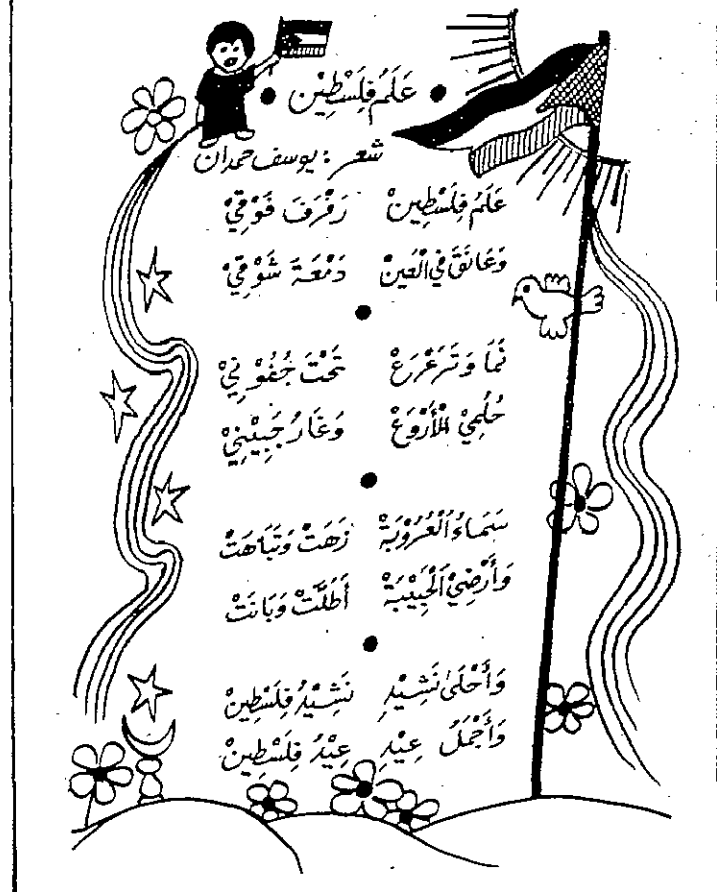 عَلَمُ فِلَسْطِيْن
شعر : يوسف حمدان
عَلَمُ فِلَسْطِينْ رَفْرَفَ فَوْقِيْ
وَعَانَقَ فِي الْعَينْ دَمْعَةَ شَوْقِيْ
نَمَا وَتَرَعْرَعْ تَحْتَ جُفُوْنِيْ
حُلُمِيْ الْأَرْوَعْ وَغَارُ جَبِيْنِيْ
سَمَاءُ الْعُرُوْبَةْ زَهَتْ وَتَبَاهَتْ
وَأَرْضِيْ الْحَبِيْبَةْ أَطَلَّتْ وَبَانَتْ
وَأَحْلَىٰ نَشِيْدٍ نَشِيْدُ فِلَسْطِينْ
وَأَجْمَلُ عِيْدٍ عِيْدُ فِلَسْطِيْنْ